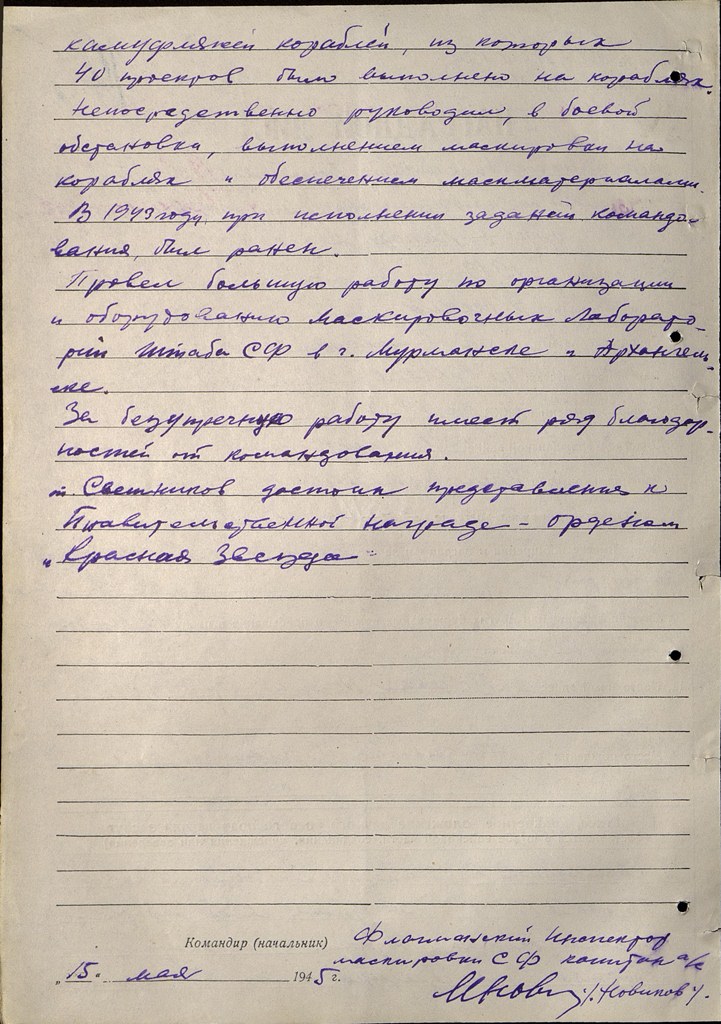 камуфляжей кораблей, из которых
40 проектов было выполнено на кораблях.
Непосредственно руководил, в боевой
обстановке, выполнением маскировки на
кораблях и обеспечением маскматериалами.
В 1943 году, при исполнении заданий командо-
вания, был ранен.
Провел большую работу по организации
и оборудованию маскировочных лаборато-
рий штаба СФ в г. Мурманске и Архангель-
ске.
За безупречную работу имеет ряд благодар-
ностей от командования.
т. Светников достоин представления к
Правительственной награде – орденом
„Красная Звезда"
Командир (начальник) Флагманский Инспектор
маскировки СФ капитан а/с
„15. мая 1945 г.
/Новиков/.